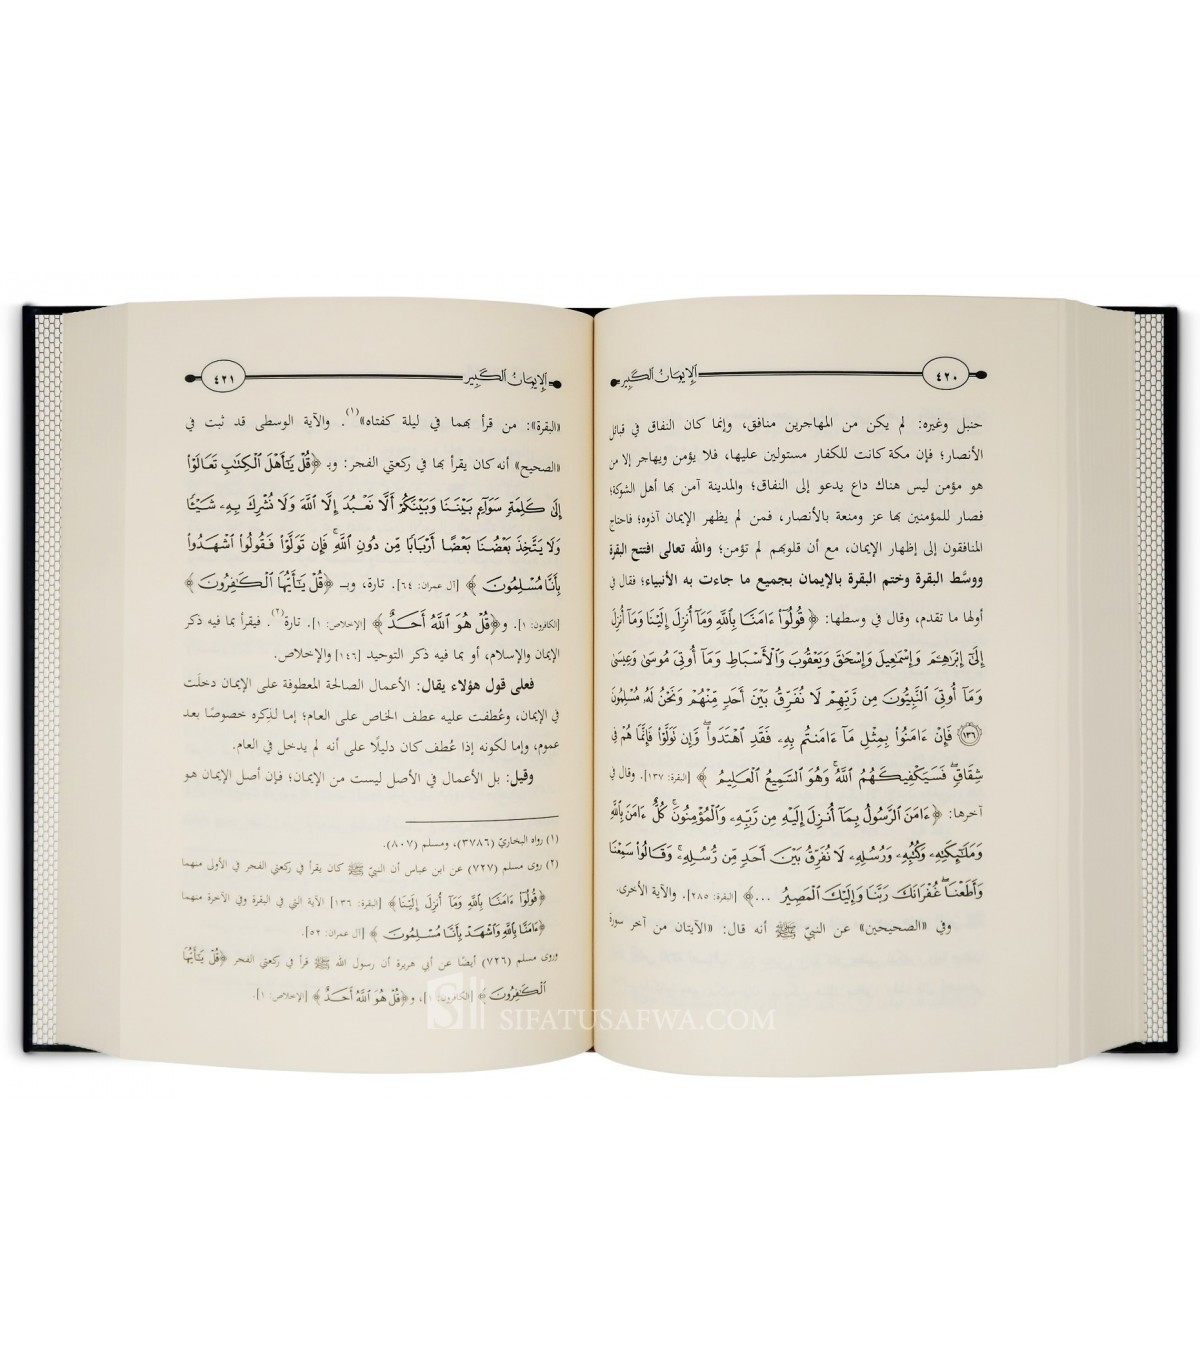 ٤٢٠ الإيمان الكبير
حنبل وغيره: لم يكن من المهاجرين منافق، وإنما كان النفاق في قبائل
الأنصار؛ فإن مكة كانت للكفار مستولين عليها، فلا يؤمن ويهاجر إلا من
هو مؤمن ليس هناك داع يدعو إلى النفاق؛ والمدينة آمن بها أهل الشوكة؛
فصار للمؤمنين بها عز ومنعة بالأنصار، فمن لم يظهر الإيمان آذوه؛ فاحتاج
المنافقون إلى إظهار الإيمان، مع أن قلوبهم لم تؤمن؛ والله تعالى افتتح البقرة
ووسَّط البقرة وختم البقرة بالإيمان بجميع ما جاءت به الأنبياء؛ فقال في
أولها ما تقدم، وقال في وسطها: ﴿ قُولُوٓا۟ ءَامَنَّا بِٱللَّهِ وَمَآ أُنزِلَ إِلَيْنَا وَمَآ أُنزِلَ
إِلَىٰٓ إِبْرَٰهِـۧمَ وَإِسْمَٰعِيلَ وَإِسْحَٰقَ وَيَعْقُوبَ وَٱلْأَسْبَاطِ وَمَآ أُوتِىَ مُوسَىٰ وَعِيسَىٰ
وَمَآ أُوتِىَ ٱلنَّبِيُّونَ مِن رَّبِّهِمْ لَا نُفَرِّقُ بَيْنَ أَحَدٍ مِّنْهُمْ وَنَحْنُ لَهُۥ مُسْلِمُونَ
﴿١٣٦﴾ فَإِنْ ءَامَنُوا۟ بِمِثْلِ مَآ ءَامَنتُم بِهِۦ فَقَدِ ٱهْتَدَوا۟ ۖ وَّإِن تَوَلَّوْا۟ فَإِنَّمَا هُمْ فِى
شِقَاقٍ ۖ فَسَيَكْفِيكَهُمُ ٱللَّهُ ۚ وَهُوَ ٱلسَّمِيعُ ٱلْعَلِيمُ ﴾ [البقرة: ١٣٧]. وقال في
آخرها: ﴿ ءَامَنَ ٱلرَّسُولُ بِمَآ أُنزِلَ إِلَيْهِ مِن رَّبِّهِۦ وَٱلْمُؤْمِنُونَ ۚ كُلٌّ ءَامَنَ بِٱللَّهِ
وَمَلَٰٓئِكَتِهِۦ وَكُتُبِهِۦ وَرُسُلِهِۦ لَا نُفَرِّقُ بَيْنَ أَحَدٍ مِّن رُّسُلِهِۦ ۚ وَقَالُوا۟ سَمِعْنَا
وَأَطَعْنَا ۖ غُفْرَانَكَ رَبَّنَا وَإِلَيْكَ ٱلْمَصِيرُ ...﴾ [البقرة: ٢٨٥]. والآية الأخرى.
وفي «الصحيحين» عن النبيّ ﷺ أنه قال: «الآيتان من آخر سورة
٤٢١ الإيمان الكبير
«البقرة»: من قرأ بهما في ليلة كفتاه»(١). والآية الوسطى قد ثبت في
«الصحيح» أنه كان يقرأ بها في ركعتي الفجر: وبـ ﴿قُلْ يَٰٓأَهْلَ ٱلْكِتَٰبِ تَعَالَوْا۟
إِلَىٰ كَلِمَةٍ سَوَآءٍۭ بَيْنَنَا وَبَيْنَكُمْ أَلَّا نَعْبُدَ إِلَّا ٱللَّهَ وَلَا نُشْرِكَ بِهِۦ شَيْـًٔا
وَلَا يَتَّخِذَ بَعْضُنَا بَعْضًا أَرْبَابًا مِّن دُونِ ٱللَّهِ ۚ فَإِن تَوَلَّوْا۟ فَقُولُوا۟ ٱشْهَدُوا۟
بِأَنَّا مُسْلِمُونَ ﴾ [آل عمران: ٦٤]. تارة، وبـ ﴿قُلْ يَٰٓأَيُّهَا ٱلْكَٰفِرُونَ ﴾
[الكافرون: ١]. و﴿قُلْ هُوَ ٱللَّهُ أَحَدٌ ﴾ [الإخلاص: ١]. تارة(٢). فيقرأ بما فيه ذكر
الإيمان والإسلام، أو بما فيه ذكر التوحيد [١٤٦] والإخلاص.
فعلى قول هؤلاء يقال: الأعمال الصالحة المعطوفة على الإيمان دخلَت
في الإيمان، وعُطفت عليه عطف الخاص على العام؛ إما لذِكره خصوصًا بعد
عموم، وإما لكونه إذا عُطف كان دليلًا على أنه لم يدخل في العام.
وقيل: بل الأعمال في الأصل ليست من الإيمان؛ فإن أصل الإيمان هو
(١) رواه البخاريّ (٣٧٨٦)، ومسلم (٨٠٧).
(٢) روى مسلم (٧٢٧) عن ابن عباس أن النبيّ ﷺ كان يقرأ في ركعتي الفجر في الأولى منهما
﴿قُولُوٓا۟ ءَامَنَّا بِٱللَّهِ وَمَآ أُنزِلَ إِلَيْنَا﴾ [البقرة: ١٣٦] الآية التي في البقرة وفي الآخرة منهما
﴿ءَامَنَّا بِٱللَّهِ وَٱشْهَدْ بِأَنَّا مُسْلِمُونَ ﴾ [آل عمران: ٥٢].
وروى مسلم (٧٢٦) أيضًا عن أبي هريرة أن رسول الله ﷺ قرأ في ركعتي الفجر ﴿قُلْ يَٰٓأَيُّهَا
ٱلْكَٰفِرُونَ ﴾ [الكافرون: ١]، و﴿قُلْ هُوَ ٱللَّهُ أَحَدٌ ﴾ [الإخلاص: ١].
SIFATUSAFWA.COM